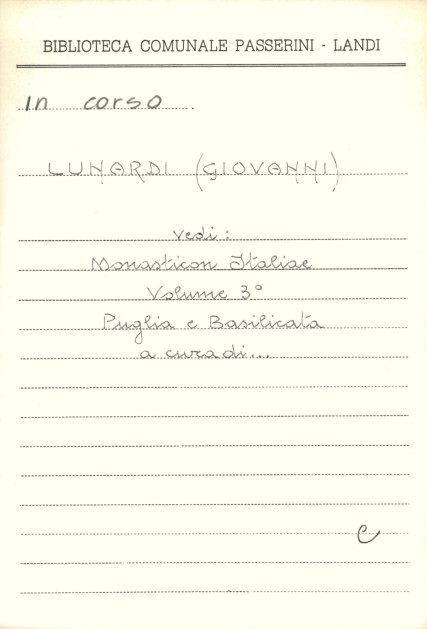 BIBLIOTECA COMUNALE PASSERINI - LANDI
In corso
LUNARDI (GIOVANNI)
vedi:
Monasticon Italiae
Volume 3°
Puglia e Basilicata
a cura di...
C